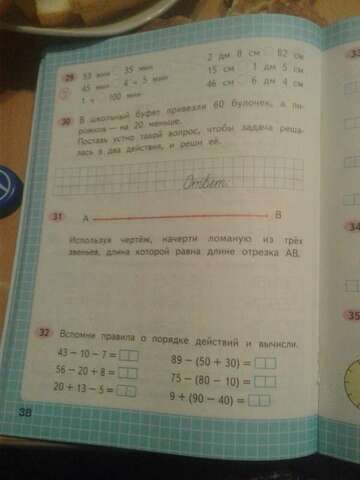 29 53 мин 35 мин 2 дм 8 см 82 см
45 мин 4 ч 5 мин 15 см 1 дм 5 см
1 ч 100 мин 46 см 6 дм 4 см
30 В школьный буфет привезли 60 булочек, а пи-
рожков — на 20 меньше.
Поставь устно такой вопрос, чтобы задача реша-
лась в два действия, и реши её.
Ответ:
31 А В
Используя чертёж, начерти ломаную из трёх
звеньев, длина которой равна длине отрезка АВ.
32 Вспомни правила о порядке действий и вычисли.
43 − 10 − 7 = 89 − (50 + 30) =
56 − 20 + 8 = 75 − (80 − 10) =
20 + 13 − 5 = 9 + (90 − 40) =
38
33
34
35